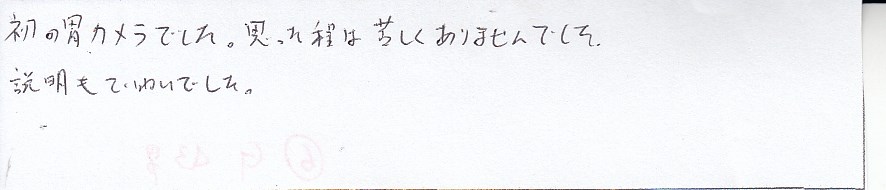 初の胃カメラでした。思った程は苦しくありませんでした。
説明もていねいでした。